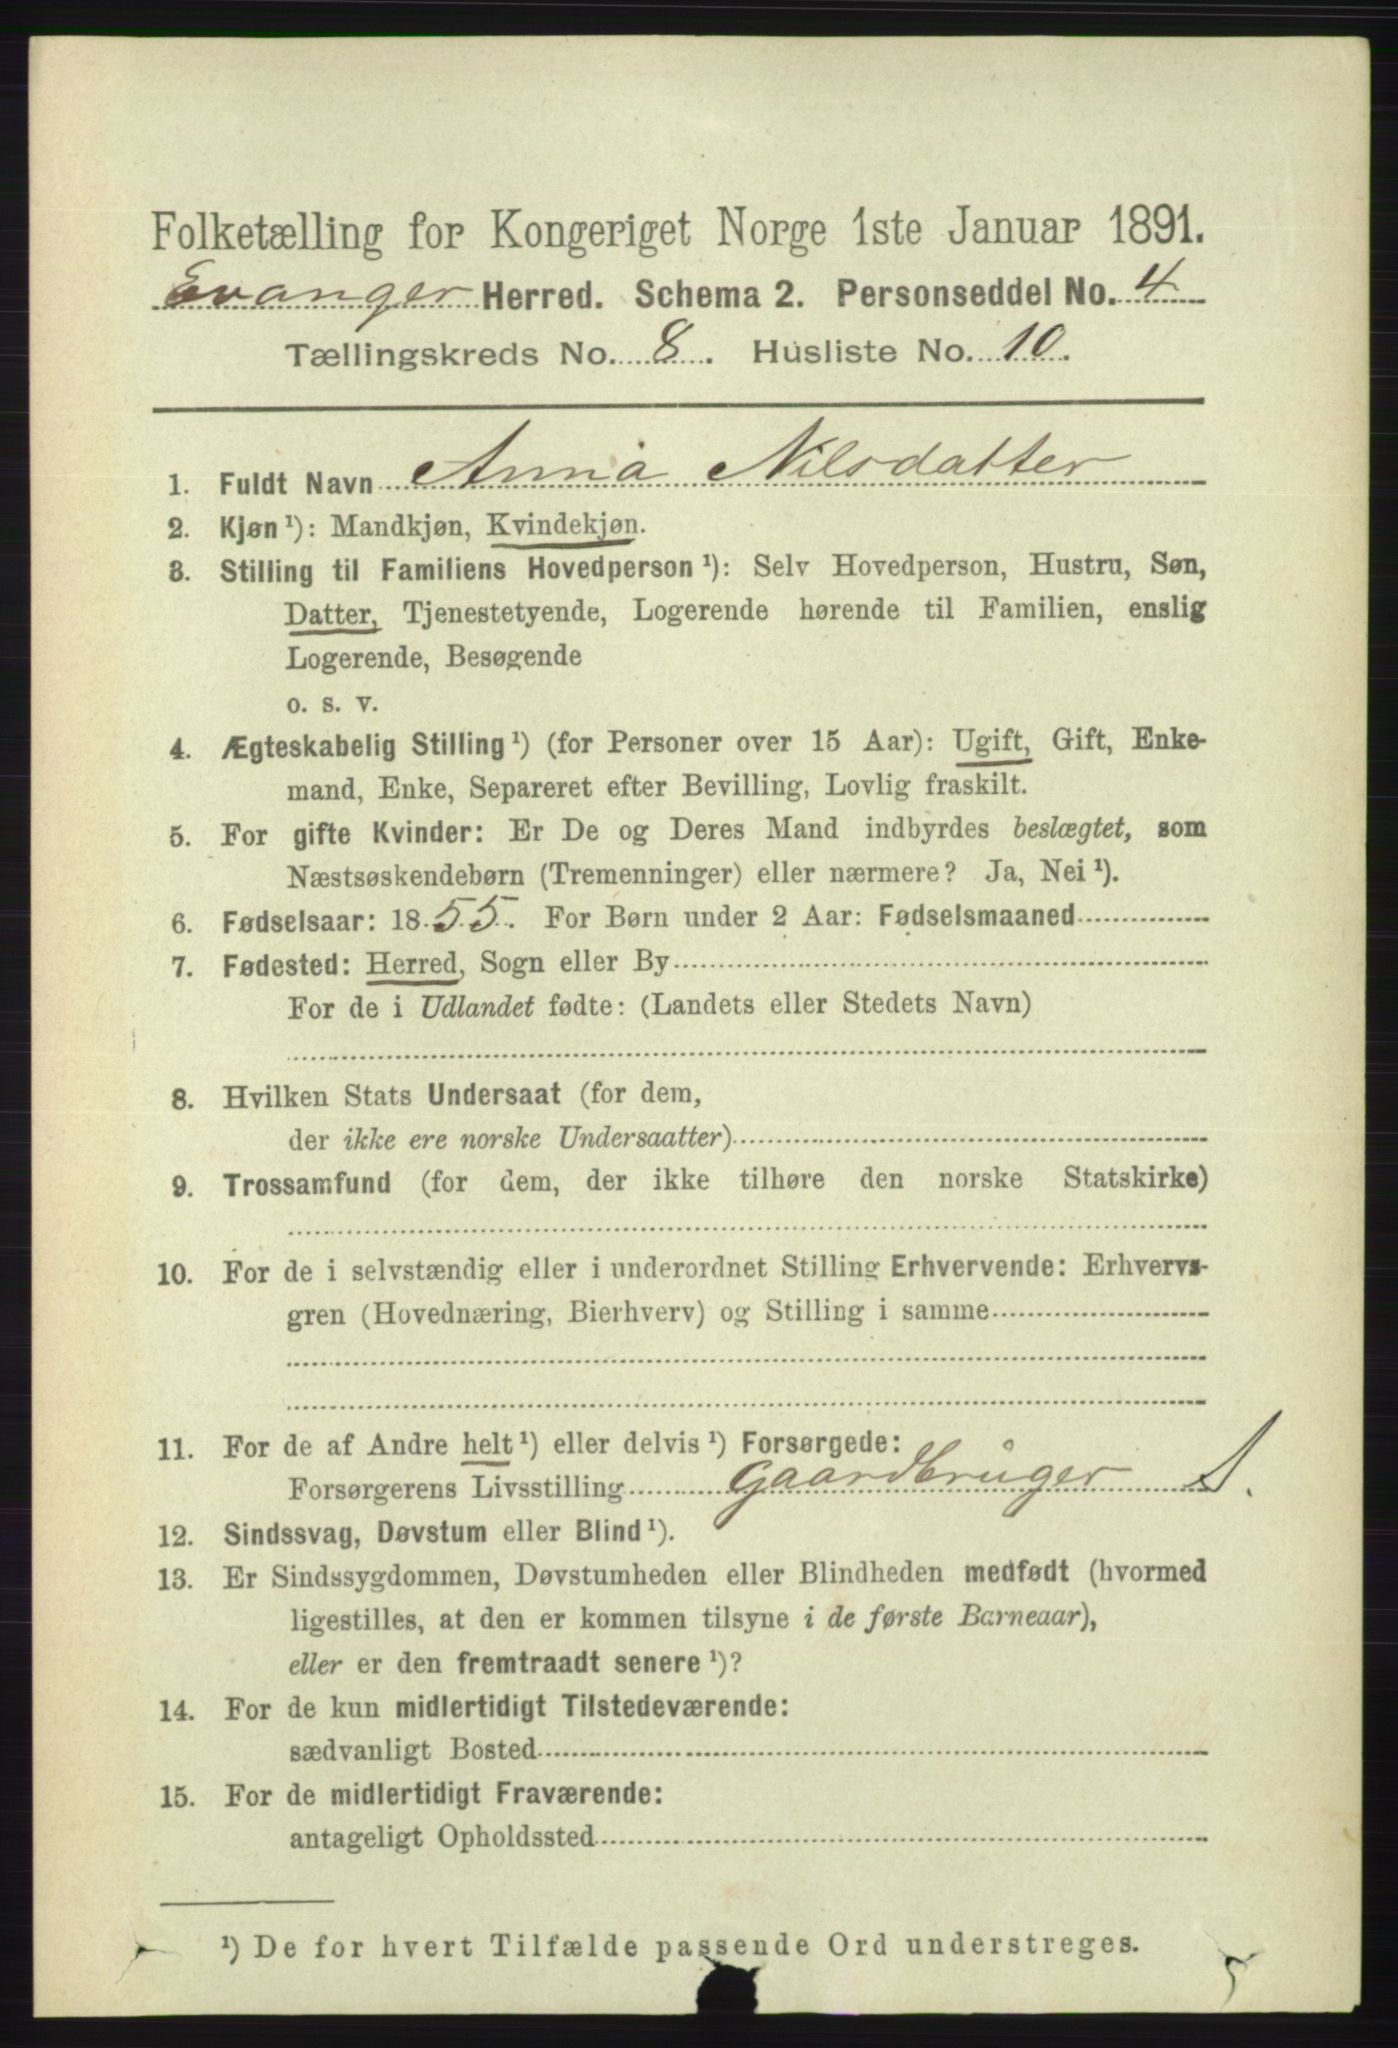 Folketælling for Kongeriget Norge 1ste Januar 1891.
Evanger Herred. Schema 2. Personseddel No. 4
Tællingskreds No. 8. Husliste No. 10.
1. Fuldt Navn Anna Nilsdatter
2. Kjøn ¹): Mandkjøn, Kvindekjøn.
3. Stilling til Familiens Hovedperson ¹): Selv Hovedperson, Hustru, Søn,
Datter, Tjenestetyende, Logerende hørende til Familien, enslig
Logerende, Besøgende
o. s. v.
4. Ægteskabelig Stilling ¹) (for Personer over 15 Aar): Ugift, Gift, Enke-
mand, Enke, Separeret efter Bevilling, Lovlig fraskilt.
5. For gifte Kvinder: Er De og Deres Mand indbyrdes beslægtet, som
Næstsøskendebørn (Tremenninger) eller nærmere? Ja, Nei ¹).
6. Fødselsaar: 1855. For Børn under 2 Aar: Fødselsmaaned
7. Fødested: Herred, Sogn eller By
For de i Udlandet fødte: (Landets eller Stedets Navn)
8. Hvilken Stats Undersaat (for dem,
der ikke ere norske Undersaatter)
9. Trossamfund (for dem, der ikke tilhøre den norske Statskirke)
10. For de i selvstændig eller i underordnet Stilling Erhvervende: Erhvervs-
gren (Hovednæring, Bierhverv) og Stilling i samme
11. For de af Andre helt ¹) eller delvis ¹) Forsørgede:
Forsørgerens Livsstilling Gaardbrúger S.
12. Sindssvag, Døvstum eller Blind ¹).
13. Er Sindssygdommen, Døvstumheden eller Blindheden medfødt (hvormed
ligestilles, at den er kommen tilsyne i de første Barneaar),
eller er den fremtraadt senere ¹)?
14. For de kun midlertidigt Tilstedeværende:
sædvanligt Bosted
15. For de midlertidigt Fraværende:
antageligt Opholdssted
¹) De for hvert Tilfælde passende Ord understreges.